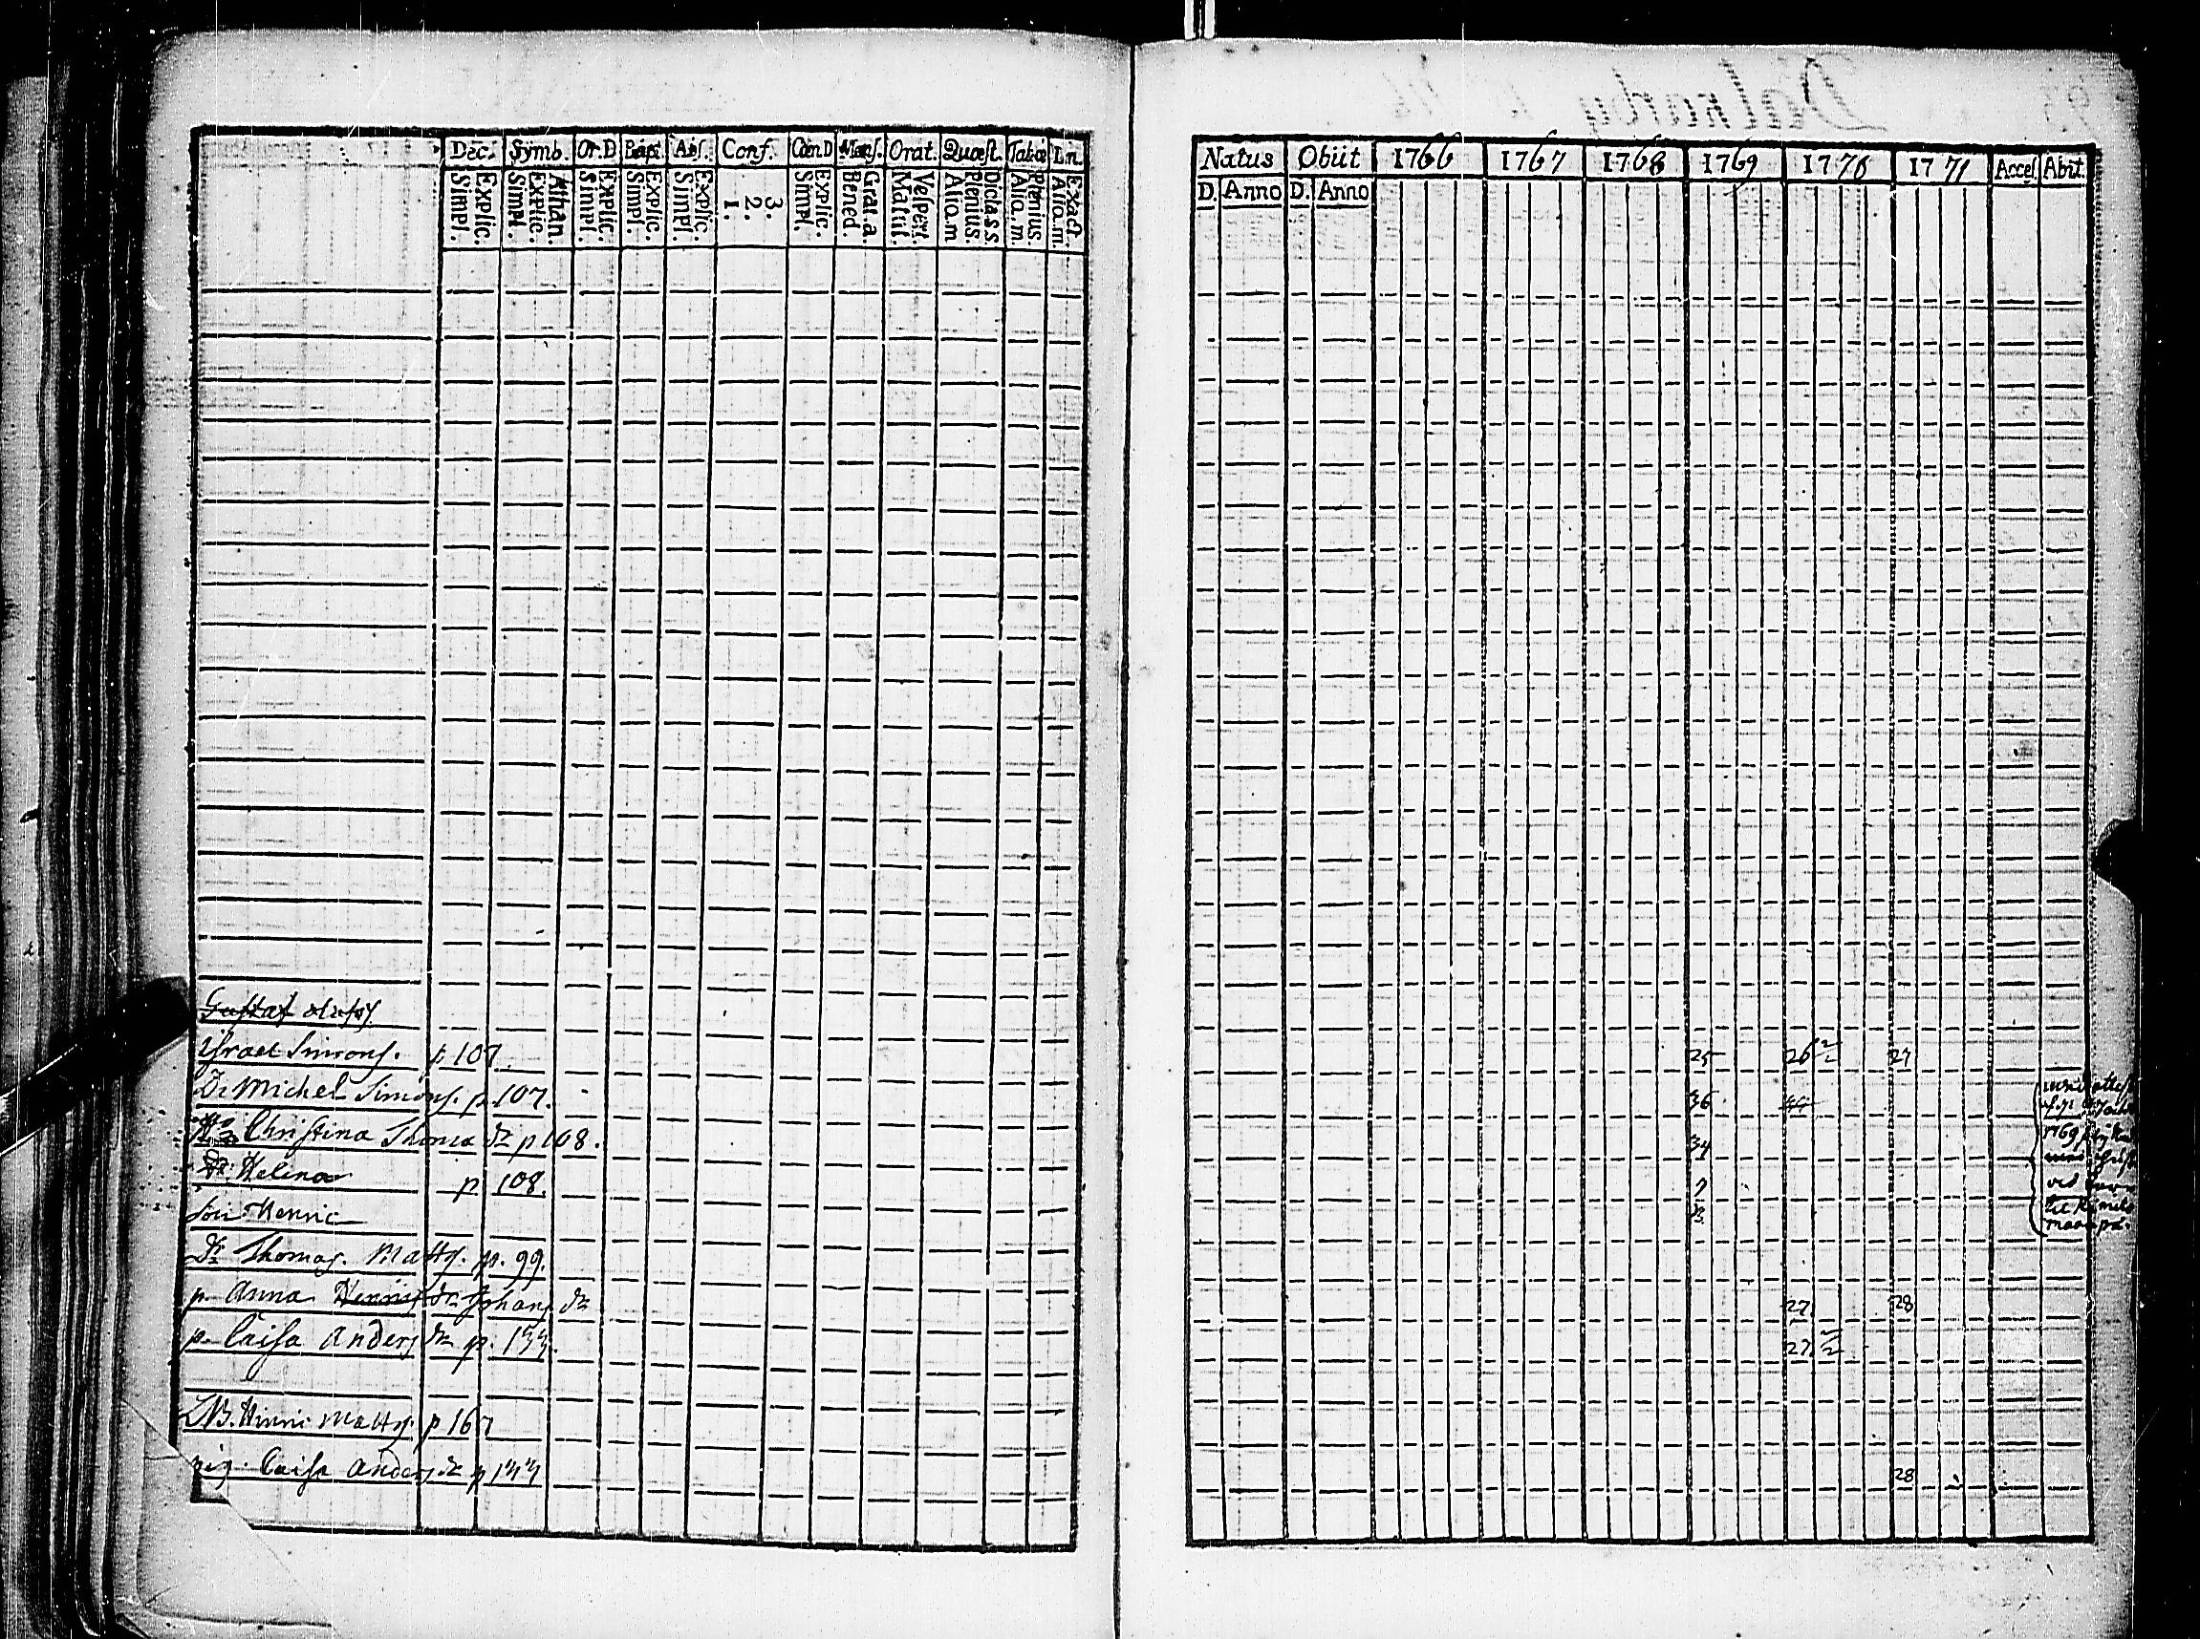 Dec. Symb. Or.D Bapt. Abs. Conf. Cœn.D Mens. Orat. Quæst. Tab.œ In.
Explic. Simpl. Athan. Explic. Simpl. Explic. Simpl. Explic. Simpl. Explic. Simpl. 3. 2. 1. Explic. Simpl. Grat.a. Bened. Vespert. Matut. Dic.la s.s. Plenius. Alio.m Plenius. Alio.m. Exact. Alio.m.
Gustaf olufss
Israel Simons. p 107.
Dr Michel Simons. p 107.
H:o Christina Thomæ dr p 108.
Dr. Helena p 108.
Son Henric
Dr Thomas. Matts. p. 99.
p. Anna Henrics dr Johans dr
p. Caisa Anders dr p. 144.
NB. Hinric Matts. p 167
pig. Caisa Anders dr p 144
Natus Obiit 1766 1767 1768 1769 1770 1771 Acces. Abiit
D. Anno D. Anno
25 26 27
36
34
27 28
27
28
1769